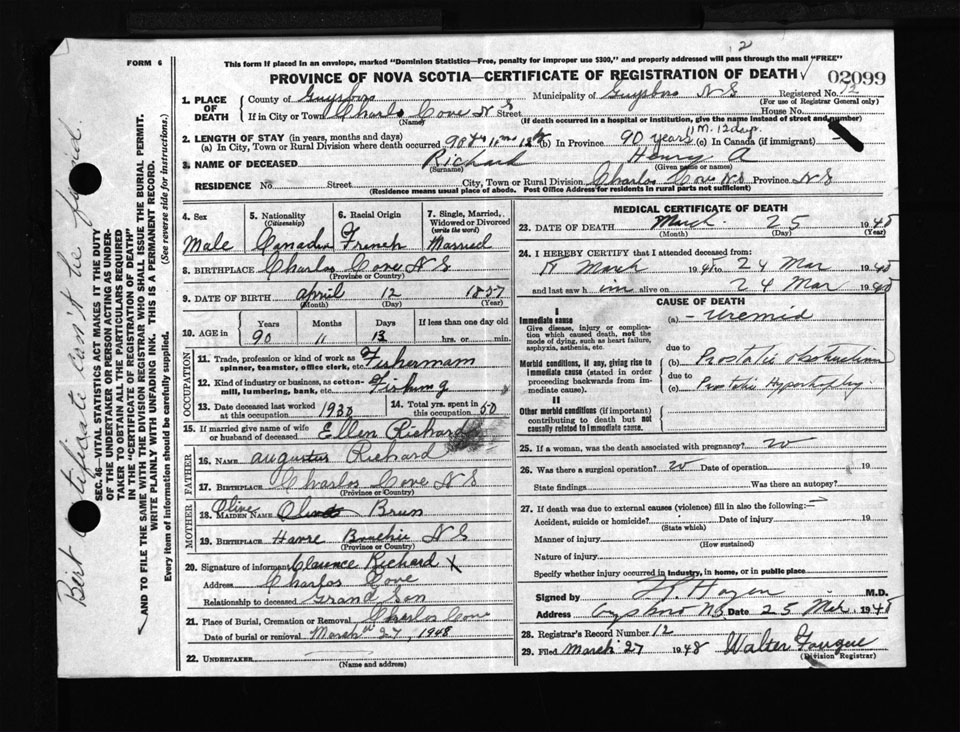 2
This form if placed in an envelope, marked "Dominion Statistics—Free, penalty for improper use $300," and properly addressed will pass through the mail "FREE"
FORM 6
PROVINCE OF NOVA SCOTIA—CERTIFICATE OF REGISTRATION OF DEATH
02099
1. PLACE OF DEATH
County of Guysboro Municipality of Guysboro N S Registered No. 12
(For use of Registrar General only)
If in City or Town Charlos Cove N S Street House No.
(Name) (If death occurred in a hospital or institution, give the name instead of street and number)
2. LENGTH OF STAY (in years, months and days)
(a) In City, Town or Rural Division where death occurred 90 yrs 11 ms 12 (b) In Province 90 years 11 M. 12 days (c) In Canada (if immigrant)
3. NAME OF DECEASED Richard Henry A
(Surname) (Given name or names)
RESIDENCE No. Street City, Town or Rural Division Charlos Cove N S Province N S
(Residence means usual place of abode. Post Office Address for residents in rural parts not sufficient)
4. Sex Male
5. Nationality (Citizenship) Canadin
6. Racial Origin French
7. Single, Married, Widowed or Divorced (write the word) Married
8. BIRTHPLACE Charlos Cove N S
(Province or Country)
9. DATE OF BIRTH April 12 1857
(Month) (Day) (Year)
10. AGE in Years Months Days If less than one day old
90 11 13 hrs. or min.
OCCUPATION
11. Trade, profession or kind of work as spinner, teamster, office clerk, etc. Fishermam
12. Kind of industry or business, as cotton-mill, lumbering, bank, etc. Fishing
13. Date deceased last worked at this occupation 1930
14. Total yrs. spent in this occupation 50
15. If married give name of wife or husband of deceased Ellen Richard
FATHER
16. NAME Augustus Richard
17. BIRTHPLACE Charlos Cove N S
(Province or Country)
MOTHER
18. MAIDEN NAME Olive Brun
19. BIRTHPLACE Havre Bouchie N S
(Province or Country)
20. Signature of informant Clarence Richard X
Address Charlos Cove
Relationship to deceased Grand Son
21. Place of Burial, Cremation or Removal Charlos Cove
Date of burial or removal March 27, 1948
22. UNDERTAKER
(Name and address)
MEDICAL CERTIFICATE OF DEATH
23. DATE OF DEATH March 25 1948
(Month) (Day) (Year)
24. I HEREBY CERTIFY that I attended deceased from:
March 1948 to 24 Mar 1948
and last saw h im alive on 24 Mar 1948
CAUSE OF DEATH
I
Immediate cause
Give disease, injury or complication which caused death, not the mode of dying, such as heart failure, asphyxia, asthenia, etc.
(a) Uremia
due to
Morbid conditions, if any, giving rise to immediate cause (stated in order proceeding backwards from immediate cause).
(b) Prostatic obstruction
due to
(c) Prostatic Hypertrophy
II
Other morbid conditions (if important) contributing to death but not causally related to immediate cause.
25. If a woman, was the death associated with pregnancy? no
26. Was there a surgical operation? no Date of operation 19
State findings Was there an autopsy?
27. If death was due to external causes (violence) fill in also the following:—
Accident, suicide or homicide? Date of injury 19
(State which)
Manner of injury
(How sustained)
Nature of injury
Specify whether injury occurred in industry, in home, or in public place
Signed by M.D.
Address Guysboro NS Date 25 Mar. 1948
28. Registrar's Record Number 12
29. Filed March 27 1948 Walter
(Division Registrar)
Birt Certificate can't be found.
SEC. 46—VITAL STATISTICS ACT MAKES IT THE DUTY
OF THE UNDERTAKER OR PERSON ACTING AS UNDER-
TAKER TO OBTAIN ALL THE PARTICULARS REQUIRED
IN THE "CERTIFICATE OF REGISTRATION OF DEATH"
AND TO FILE THE SAME WITH THE DIVISION REGISTRAR WHO SHALL ISSUE THE BURIAL PERMIT.
WRITE PLAINLY WITH UNFADING INK. THIS IS A PERMANENT RECORD.
Every item of information should be carefully supplied. (See reverse side for instructions.)